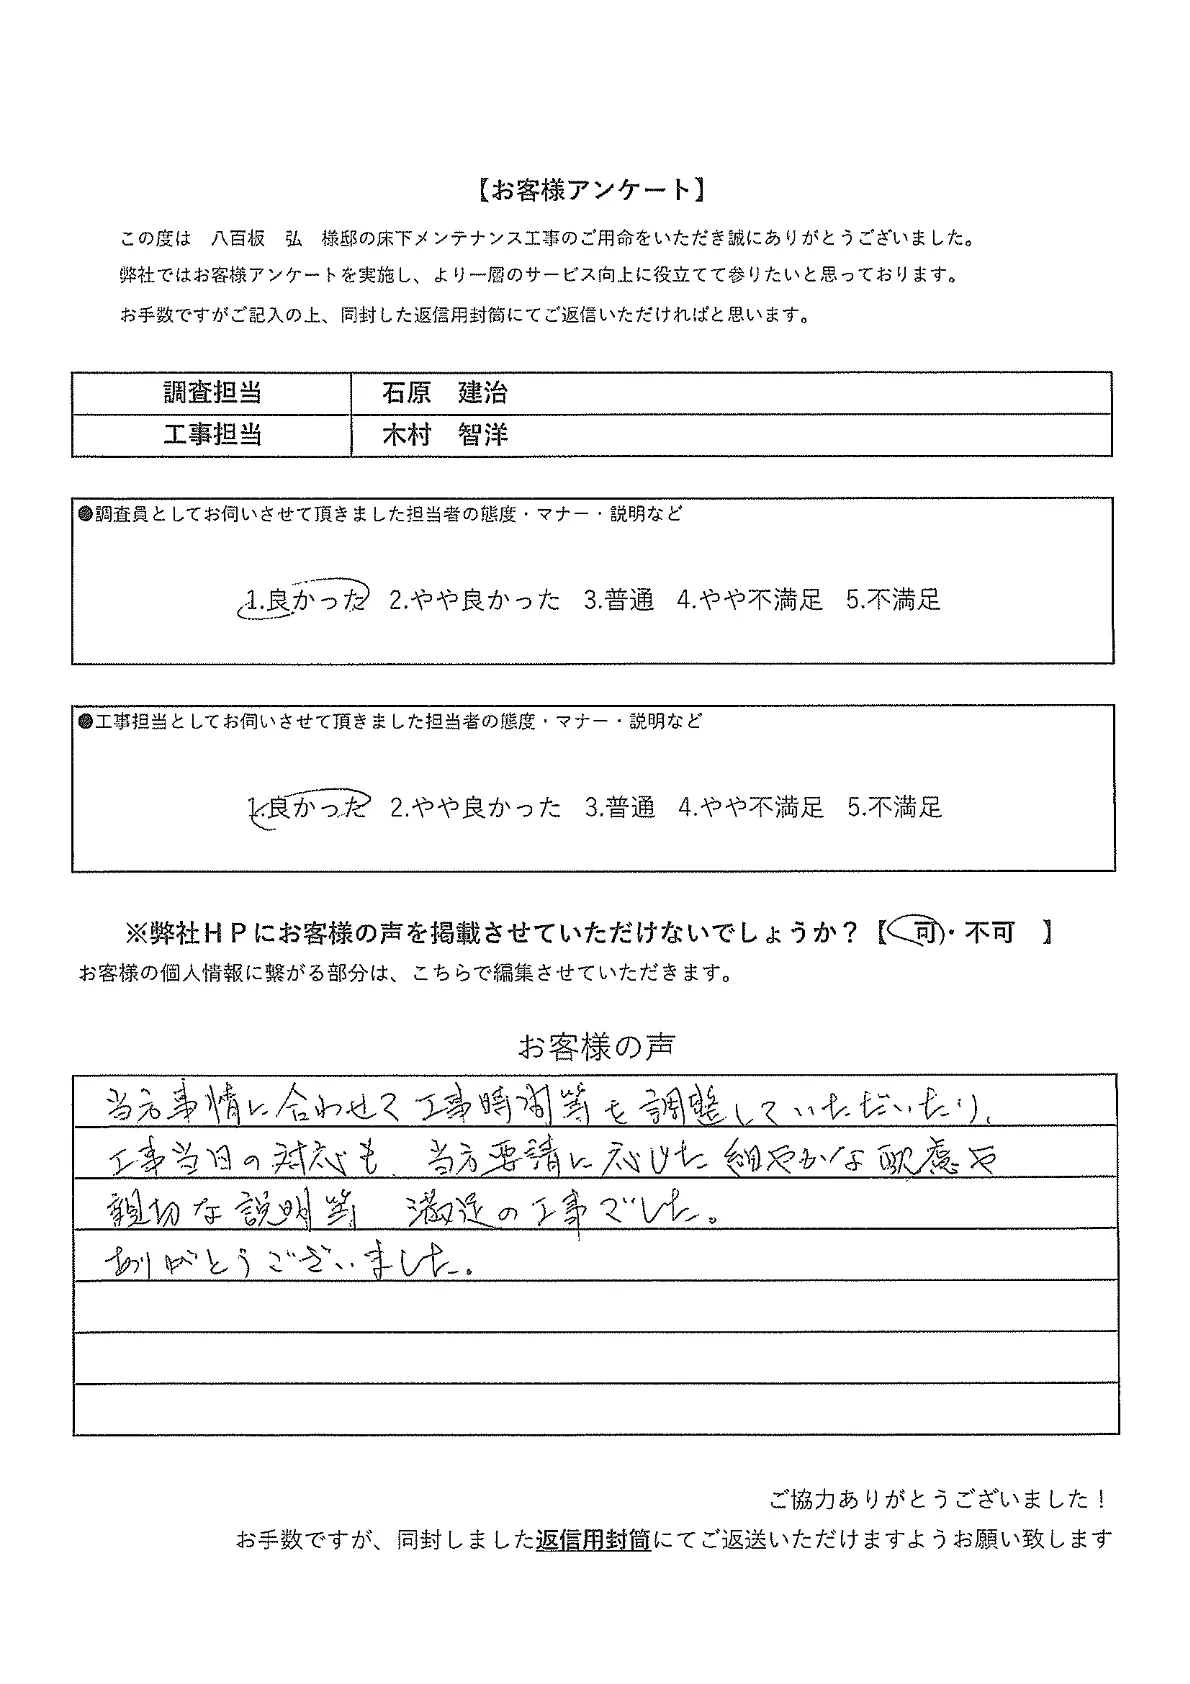 【お客様アンケート】
この度は　八百板　弘　様邸の床下メンテナンス工事のご用命をいただき誠にありがとうございました。
弊社ではお客様アンケートを実施し、より一層のサービス向上に役立てて参りたいと思っております。
お手数ですがご記入の上、同封した返信用封筒にてご返信いただければと思います。
調査担当　石原　建治
工事担当　木村　智洋
●調査員としてお伺いさせて頂きました担当者の態度・マナー・説明など
1.良かった　2.やや良かった　3.普通　4.やや不満足　5.不満足
●工事担当としてお伺いさせて頂きました担当者の態度・マナー・説明など
1.良かった　2.やや良かった　3.普通　4.やや不満足　5.不満足
※弊社ＨＰにお客様の声を掲載させていただけないでしょうか？【　可・不可　】
お客様の個人情報に繋がる部分は、こちらで編集させていただきます。
お客様の声
当方事情に合わせて工事時間等を調整していただいたり、
工事当日の対応も、当方要請に応じた細やかな配慮や
親切な説明等　満足の工事でした。
ありがとうございました。
ご協力ありがとうございました！
お手数ですが、同封しました返信用封筒にてご返送いただけますようお願い致します